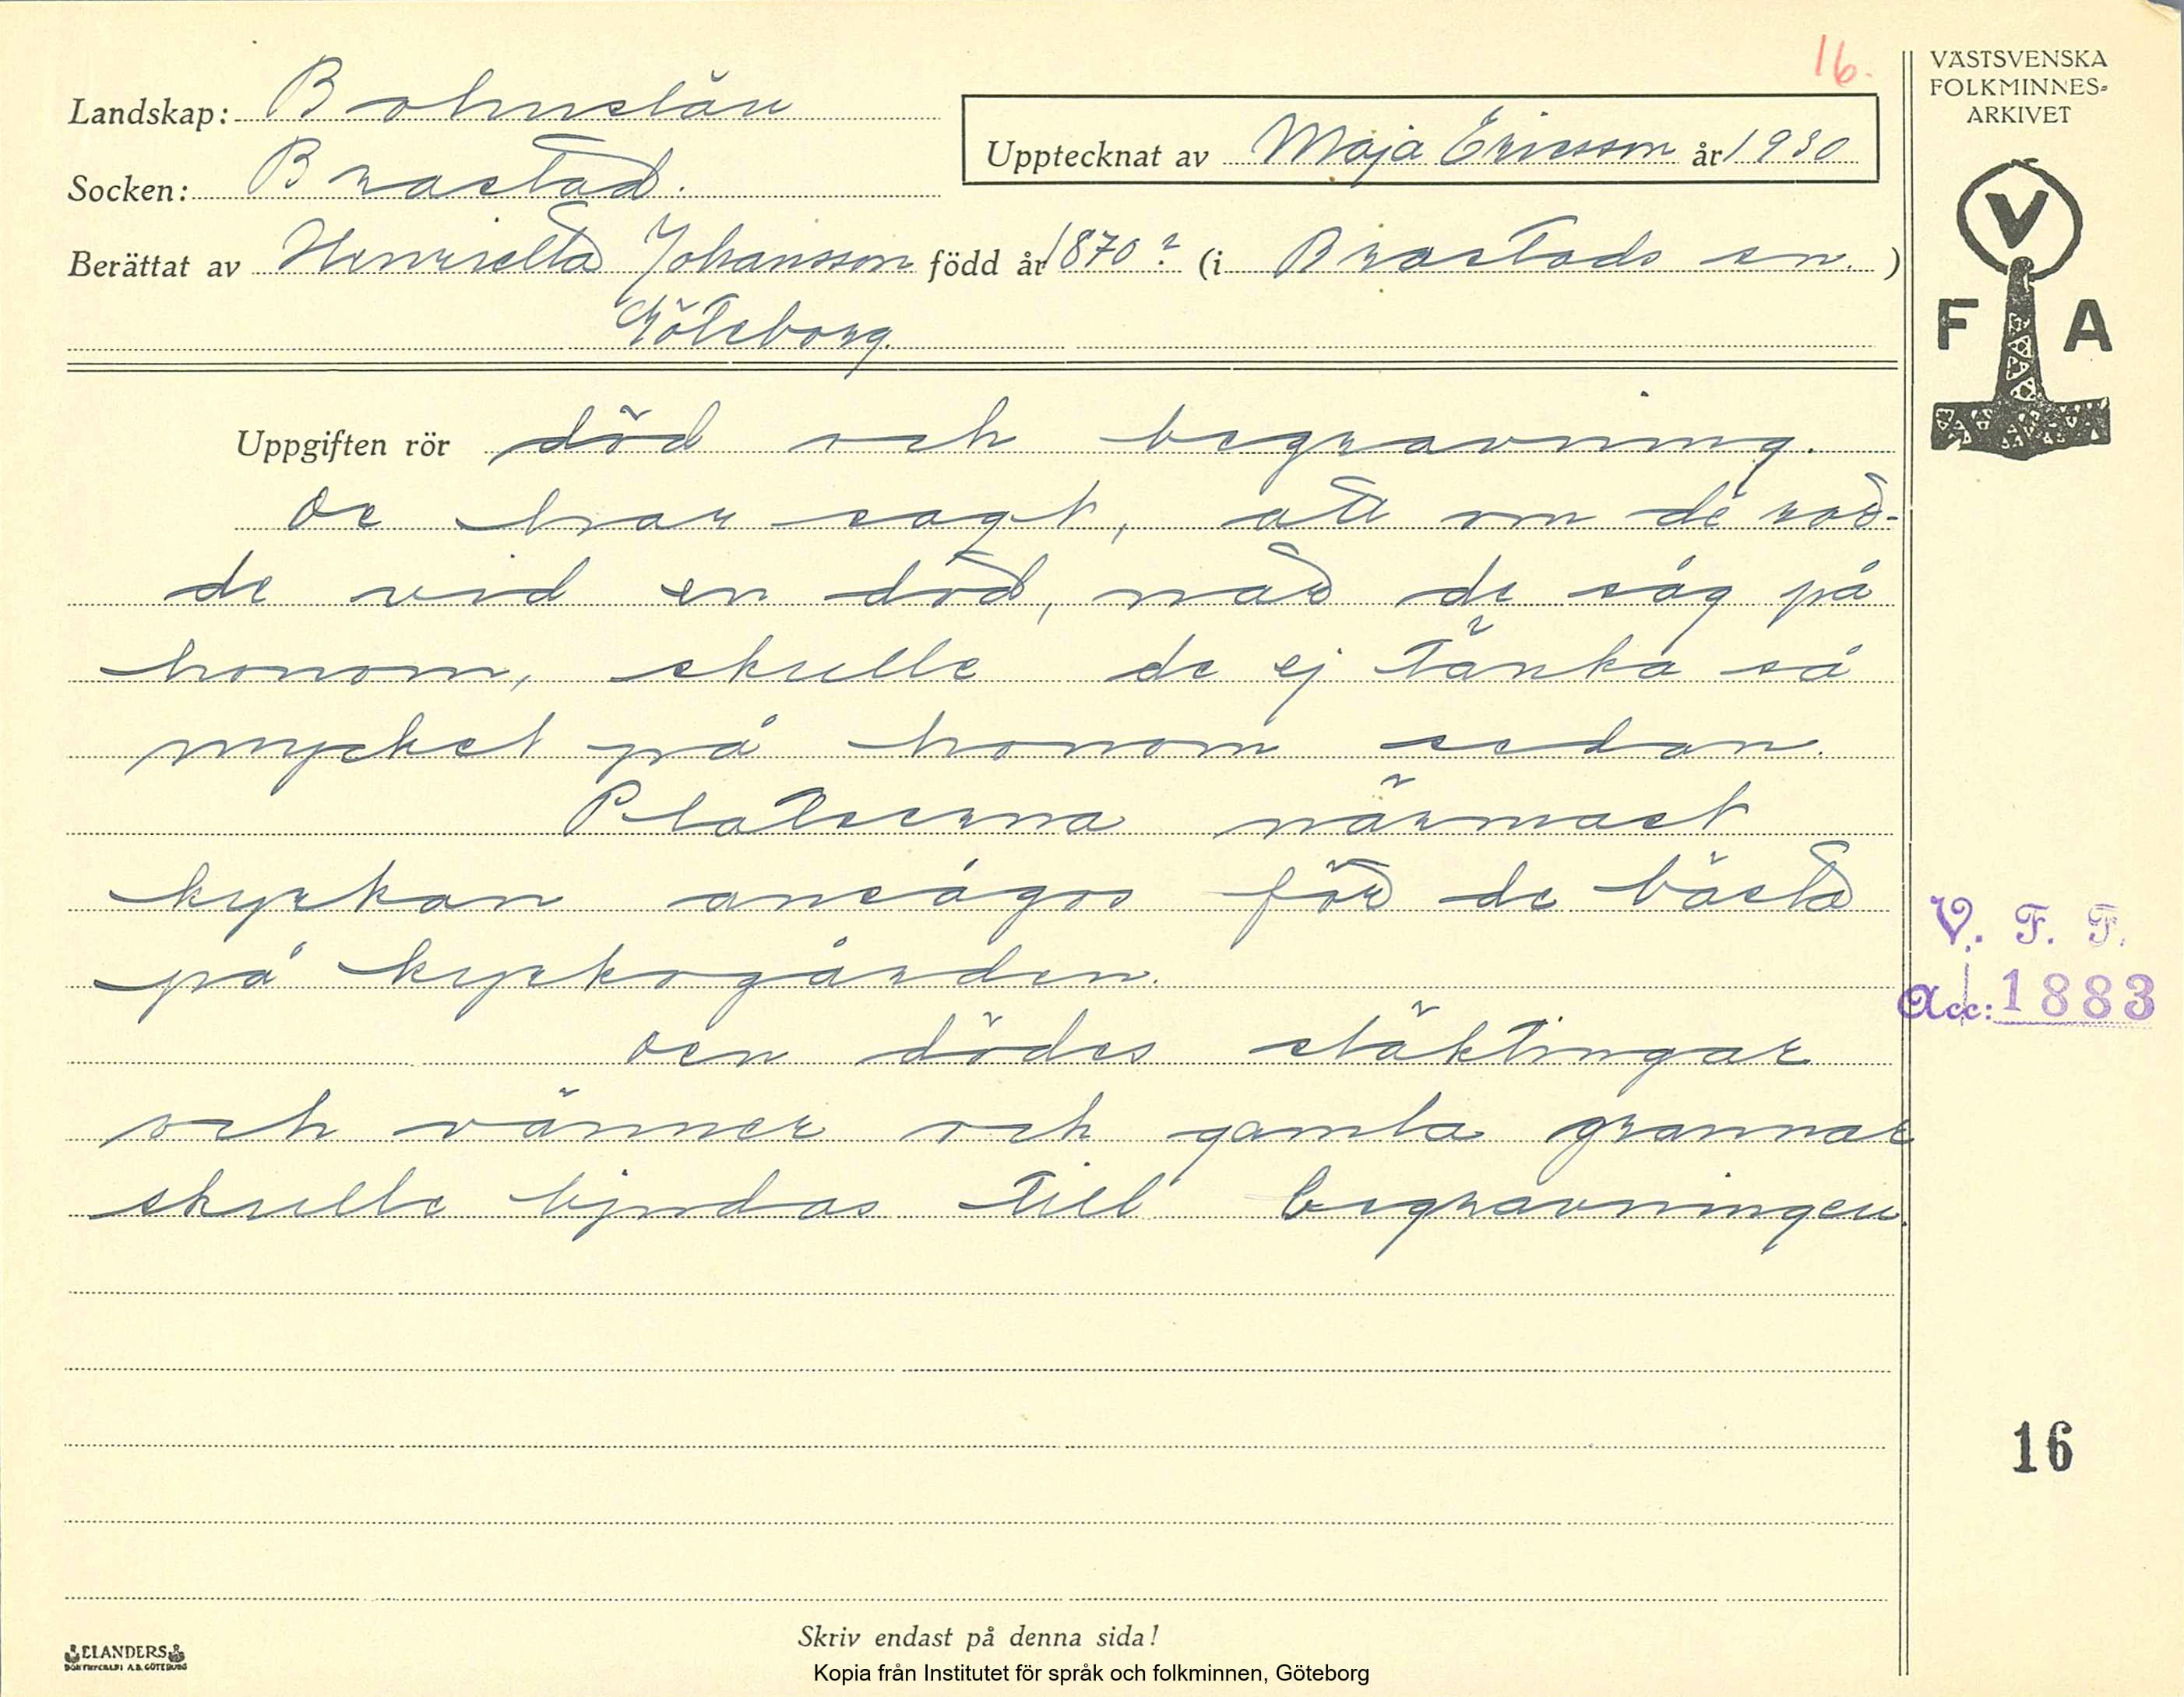 16.
VÄSTSVENSKA
FOLKMINNES-
ARKIVET
Landskap: Bohuslän
Upptecknat av Maja Ericsson år 1930
Socken: Brastad.
Berättat av Henrietta Johansson född år 1870? (i Brastads sn. )
Göteborg.
V
F A
Uppgiften rör död och begravning.
De har sagt, att om de röd-
de vid en död, när de såg på
honom, skulle de ej tänka så
mycket på honom sedan.
Platserna närmast
kyrkan ansågos för de bästa
på kyrkogården.
Den dödes släktingar
och vänner och gamla grannar
skulle bjudas till begravningen.
V. F. F.
Acc: 1883
16
ELANDERS
BOKTRYCKERI A.B. GÖTEBORG
Skriv endast på denna sida!
Kopia från Institutet för språk och folkminnen, Göteborg